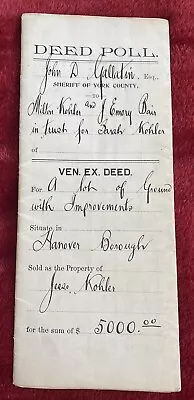 DEED POLL.
John D. Gallatin, Esq.,
SHERIFF OF YORK COUNTY.
—TO—
Milton Kohler and J. Emory Bair
in trust for Sarah Kohler
VEN. EX. DEED.
For A lot of Ground
with Improvements
Situate in
Hanover Borough
Sold as the Property of
Jesse Kohler
for the sum of $ 5000.00